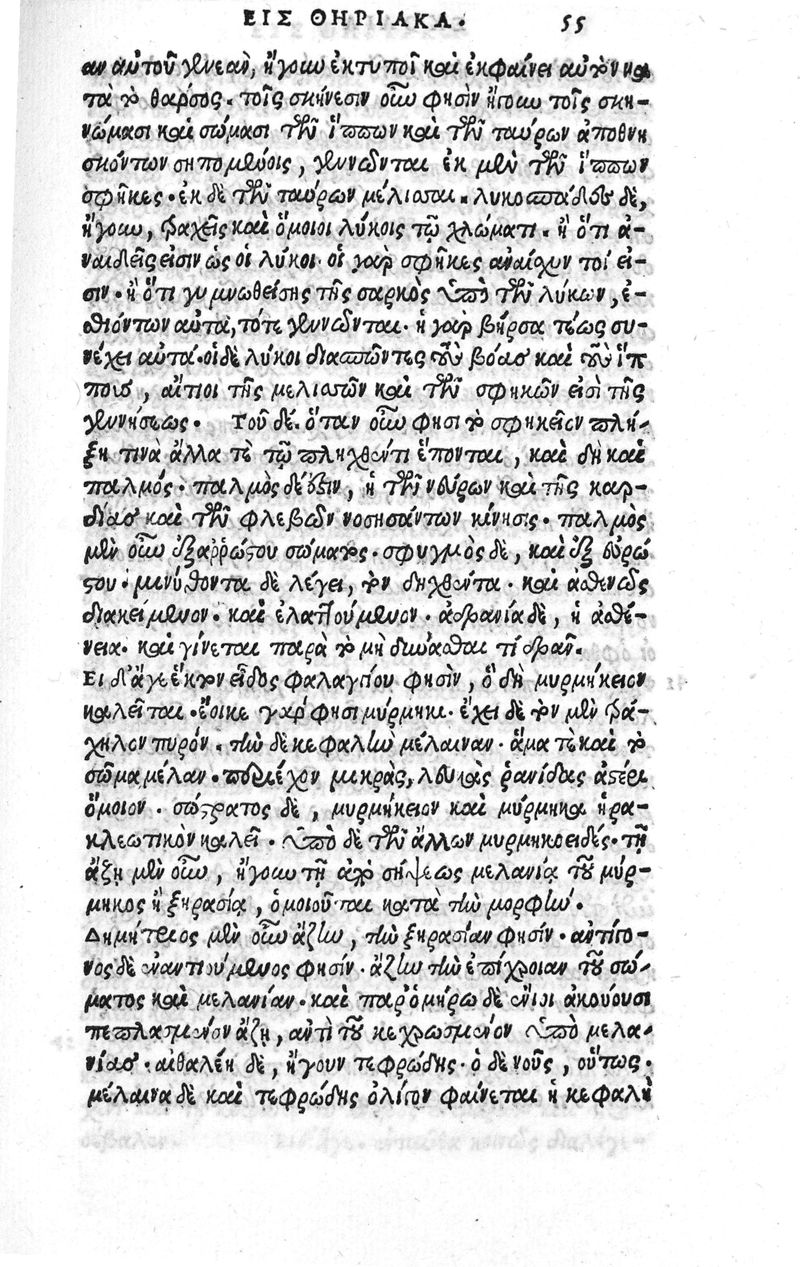 ΕΙΣ ΘΗΡΙΑΚΑ. 55
αν αὐτοῦ γενεὰν, ἤγουν ἐκτυποῖ καὶ ἐκφαίνει αὐτὸν κα
τὰ τὸ θάρσος. τοῖς σκήνεσιν οὖν φησὶν ἤγουν τοῖς σκη-
νώμασι καὶ σώμασι τῶν ἵππων καὶ τῶν ταύρων ἀποθνη
σκόντων σηπομένοις, γεννῶνται ἐκ μὲν τῶν ἵππων
σφῆκες. ἐκ δὲ τῶν ταύρων μέλισσαι. λυκοσπάδες δὲ,
ἤγουν, ταχεῖς καὶ ὅμοιοι λύκοις τῷ χρώματι. ἢ ὅτι ἀ-
ναιδεῖς εἰσιν ὡς οἱ λύκοι. οἱ γὰρ σφῆκες ἀναίσχυν τοί εἰ-
σιν. ἢ ὅτι γυμνωθείσης τῆς σαρκὸς ὑπὸ τῶν λύκων, ἐ-
σθιόντων αὐτὰ, τότε γεννῶνται. ἡ γὰρ βύρσα τέως συ-
νέχει αὐτά. οἱ δὲ λύκοι διασπῶντες τοὺς βόας καὶ τοὺς ἵπ
πους, αἴτιοι τῆς μελισσῶν καὶ τῶν σφηκῶν εἰσὶ τῆς
γεννήσεως. Τοῦ δέ. ὅταν οὖν φησι τὸ σφηκεῖον πλή-
ξῃ τινὰ ἄλλα τε τῷ πληχθέντι ἕπονται, καὶ δὴ καὶ
παλμός. παλμὸς δέ ἐστιν, ἡ τῶν νεύρων καὶ τῆς καρ-
δίας καὶ τῶν φλεβῶν νοσησάντων κίνησις. παλμὸς
μὲν οὖν ἐξ ἀῤῥώστου σώματος. σφυγμὸς δὲ, καὶ ἐξ εὐρώ
στου. μινύθοντα δὲ λέγει, τὸν δηχθέντα. καὶ ἀσθενῶς
διακείμενον. καὶ ἐλαττούμενον. ἀδρανία δὲ, ἡ ἀσθέ-
νεια. καὶ γίνεται παρὰ τὸ μὴ δύνασθαι τί δρᾶν.
Ει δ' ἄγε ἕτερον εἶδος φαλαγγίου φησὶν, ὃ δὴ μυρμήκειον
καλεῖται. ἔοικε γάρ φησι μύρμηκι. ἔχει δὲ τὸν μὲν τρά-
χηλον πυρόν. τὴν δὲ κεφαλὴν μέλαιναν. ἅμα τε καὶ τὸ
σῶμα μέλαν. περιέχον μικρὰς, λευκὰς ῥανίδας ἀστέρι
ὅμοιον. σώστρατος δὲ, μυρμήκειον καὶ μύρμηκα ἡρα-
κλεωτικὸν καλεῖ. ὑπὸ δὲ τῶν ἄλλων μυρμηκοειδές. τῇ
ἄζῃ μὲν οὖν, ἤγουν τῇ ἀπὸ σήψεως μελανίᾳ τοῦ μύρ-
μηκος ἢ ξηρασίᾳ, ὁμοιοῦται κατὰ τὴν μορφήν.
Δημήτριος μὲν οὖν ἄζην, τὴν ξηρασίαν φησίν. ἀντίγο-
νος δὲ ἐναντιούμενος φησίν. ἄζην τὴν ἐπίχροιαν τοῦ σώ-
ματος καὶ μελανίαν. καὶ παρ' ὁμήρῳ δὲ ἔνιοι ἀκούουσι
πεπλασμένον ἄζῃ, ἀντὶ τοῦ κεχρωσμένον ὑπὸ μελα-
νίας. αἰθαλέη δὲ, ἤγουν τεφρώδης. ὁ δὲ νοῦς, οὕτως.
μέλαινα δὲ καὶ τεφρώδης ὀλίγον φαίνεται ἡ κεφαλὴ